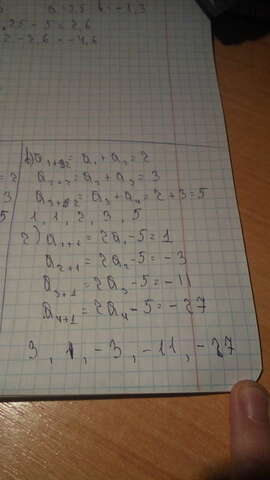 ,25-5=2,6
2-2,6=-4,6
в) a₁₊₂ = a₁ + a₂ = 2
a₂₊₂ = a₂ + a₃ = 3
a₃₊₂ = a₃ + a₄ = 2 + 3 = 5
1, 1, 2, 3, 5
г) a₁₊₁ = 2a₁ - 5 = 1
a₂₊₁ = 2a₂ - 5 = -3
a₃₊₁ = 2a₃ - 5 = -11
a₄₊₁ = 2a₄ - 5 = -27
3, 1, -3, -11, -27